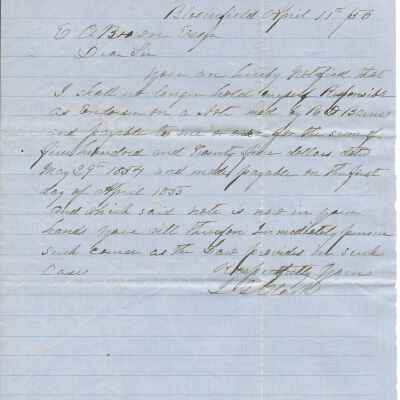 Bloomfield April 1st /56
E A Brown Esqr
Dear Sir
you are hereby Notified that
I shall no longer hold myself Responsible
as Endorser on a Note made by
and payable to me or order for the sum of
five hundred and Twenty five dollars dated
May 29th 1854 and made payable on the first
day of April 1855
and which said note is now in your
hands you will therefore Immediately pursue
such course as the Law provides in such
cases
Respectfully Yours
Clark